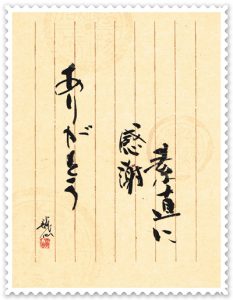 素直に
感謝
ありがとう